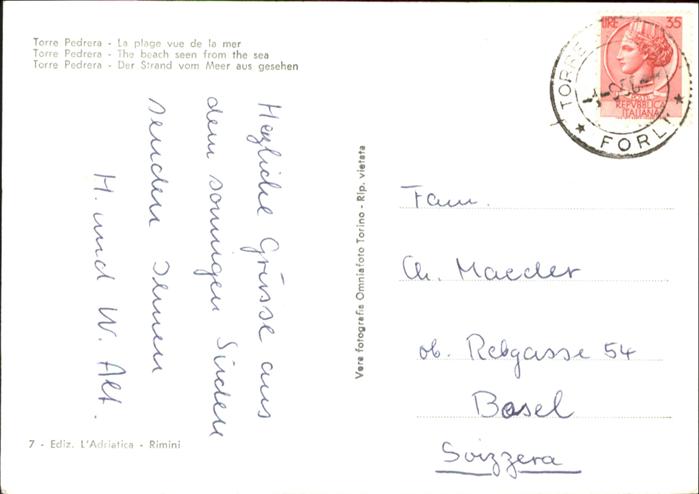 Torre Pedrera - La plage vue de la mer
Torre Pedrera - The beach seen from the sea
Torre Pedrera - Der Strand vom Meer aus gesehen
Herzliche Grüsse aus
dem sonnigen Süden
senden Ihnen
H. und W. Alt.
7 - Ediz. L'Adriatica - Rimini
Vera fotografia Omniafoto Torino - Rip. vietata
LIRE 35
POSTE
REPVBBLICA
ITALIANA
TORRE
FORLI'
Fam.
Ch. Maeder
ob. Rebgasse 54
Basel
Svizzera